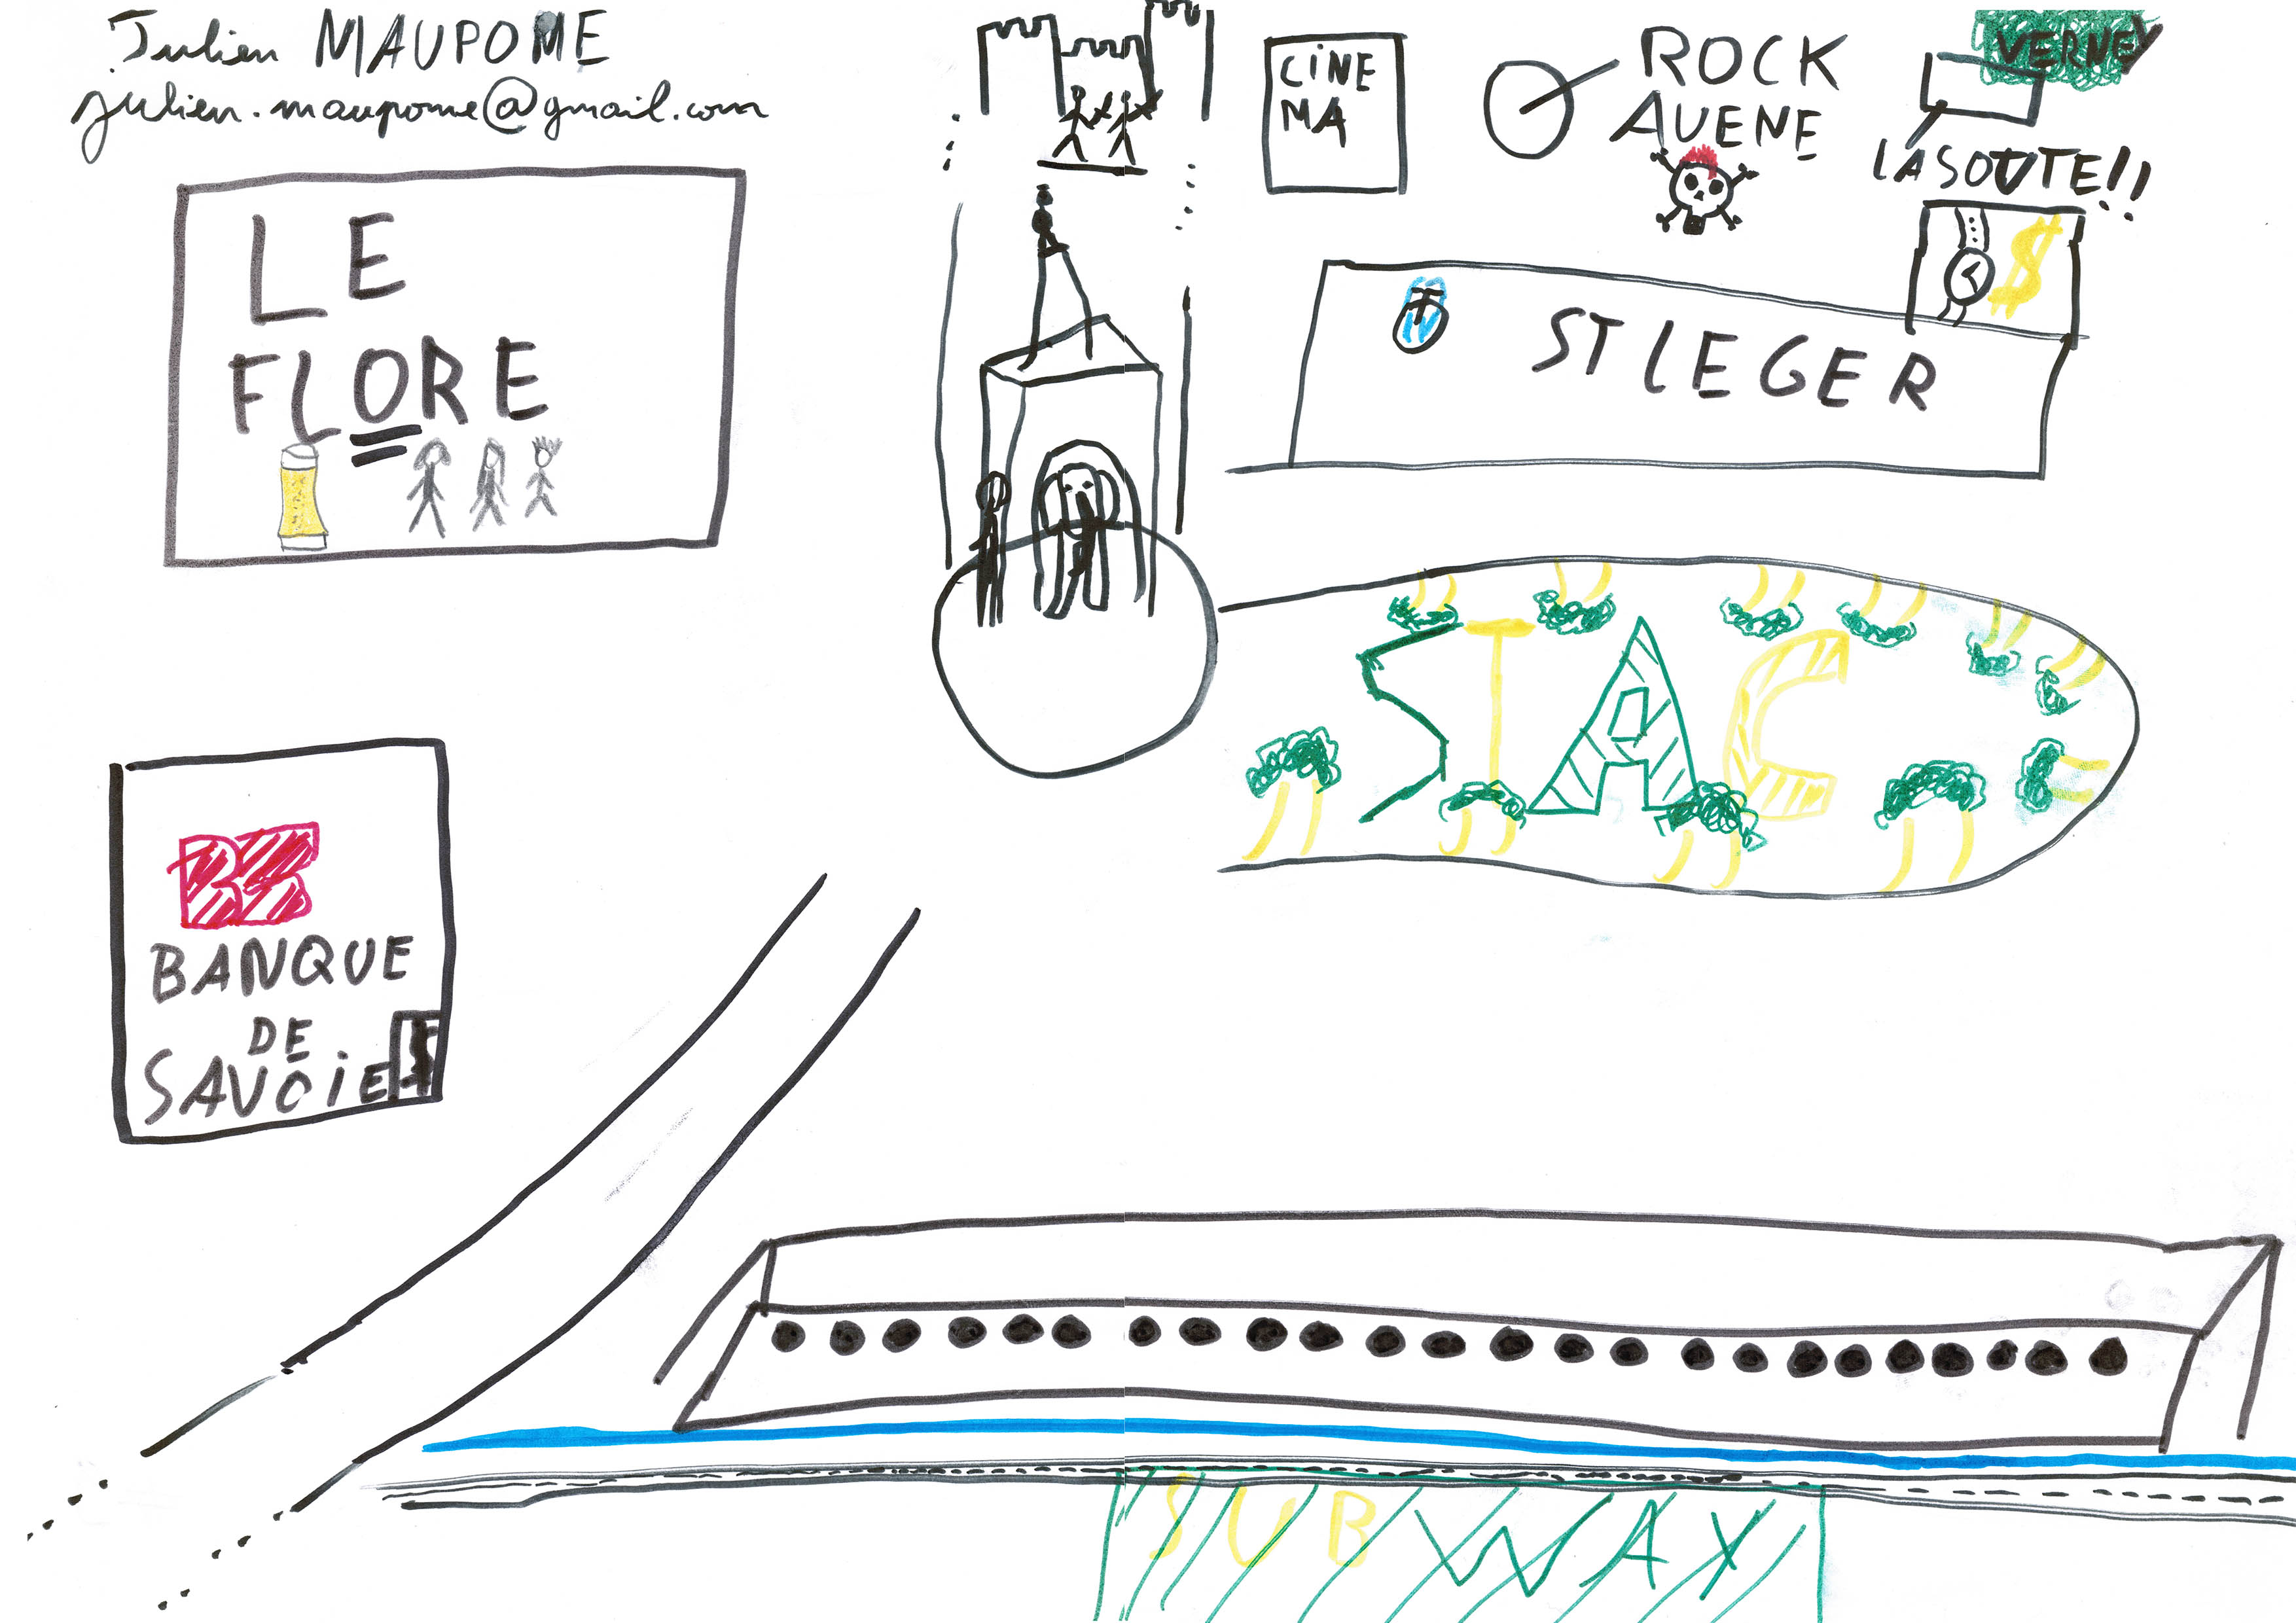 Julien MAUPOME
julien.maupome@gmail.com
CiNE
MA
ROCK
AVENE
VERNEY
LA SOUTE!!
LE
FLORE
$
ST LEGER
STAC
BANQUE
DE
SAVOiE
SUBWAY